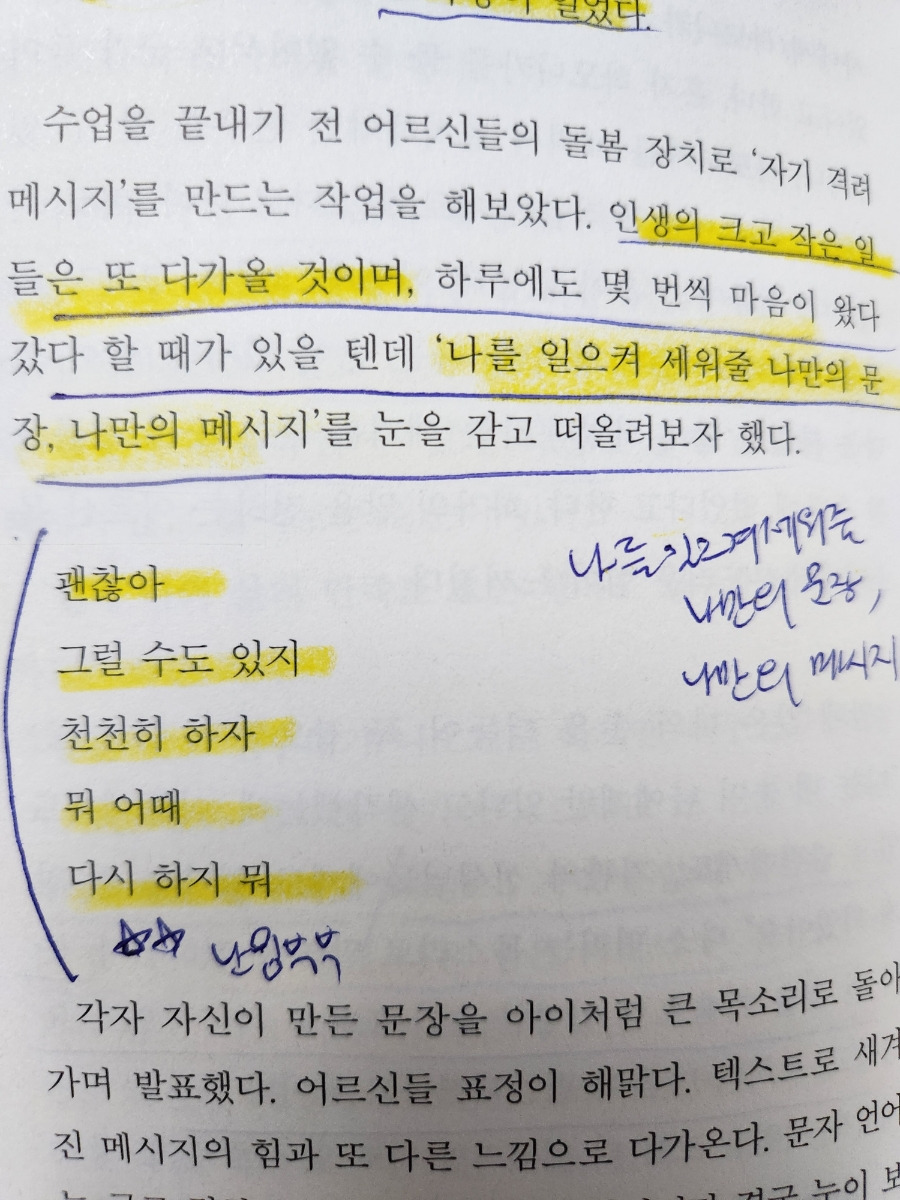 수업을 끝내기 전 어르신들의 돌봄 장치로 ‘자기 격려
메시지’를 만드는 작업을 해보았다. 인생의 크고 작은 일
들은 또 다가올 것이며, 하루에도 몇 번씩 마음이 왔다
갔다 할 때가 있을 텐데 ‘나를 일으켜 세워줄 나만의 문
장, 나만의 메시지’를 눈을 감고 떠올려보자 했다.
나를 일으켜 세워줄
나만의 문장,
나만의 메시지
괜찮아
그럴 수도 있지
천천히 하자
뭐 어때
다시 하지 뭐
☆☆ 난임부부
각자 자신이 만든 문장을 아이처럼 큰 목소리로 돌아
가며 발표했다. 어르신들 표정이 해맑다. 텍스트로 새겨
진 메시지의 힘과 또 다른 느낌으로 다가온다. 문자 언어